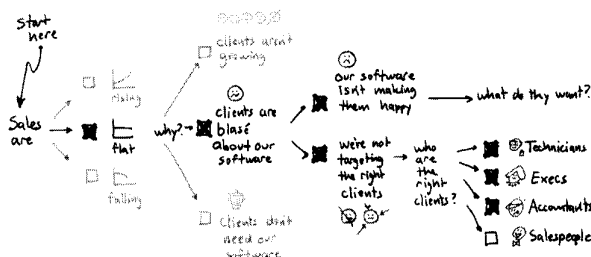 Start
here
Sales
are
rising
flat
falling
why?
clients aren't
growing
clients are
blasé
about our
software
Clients don't
need our
software
our software
isn't making
them happy
what do they want?
we're not
targeting
the right
clients
who
are
the
right
clients?
Technicians
Execs
Accountants
Salespeople